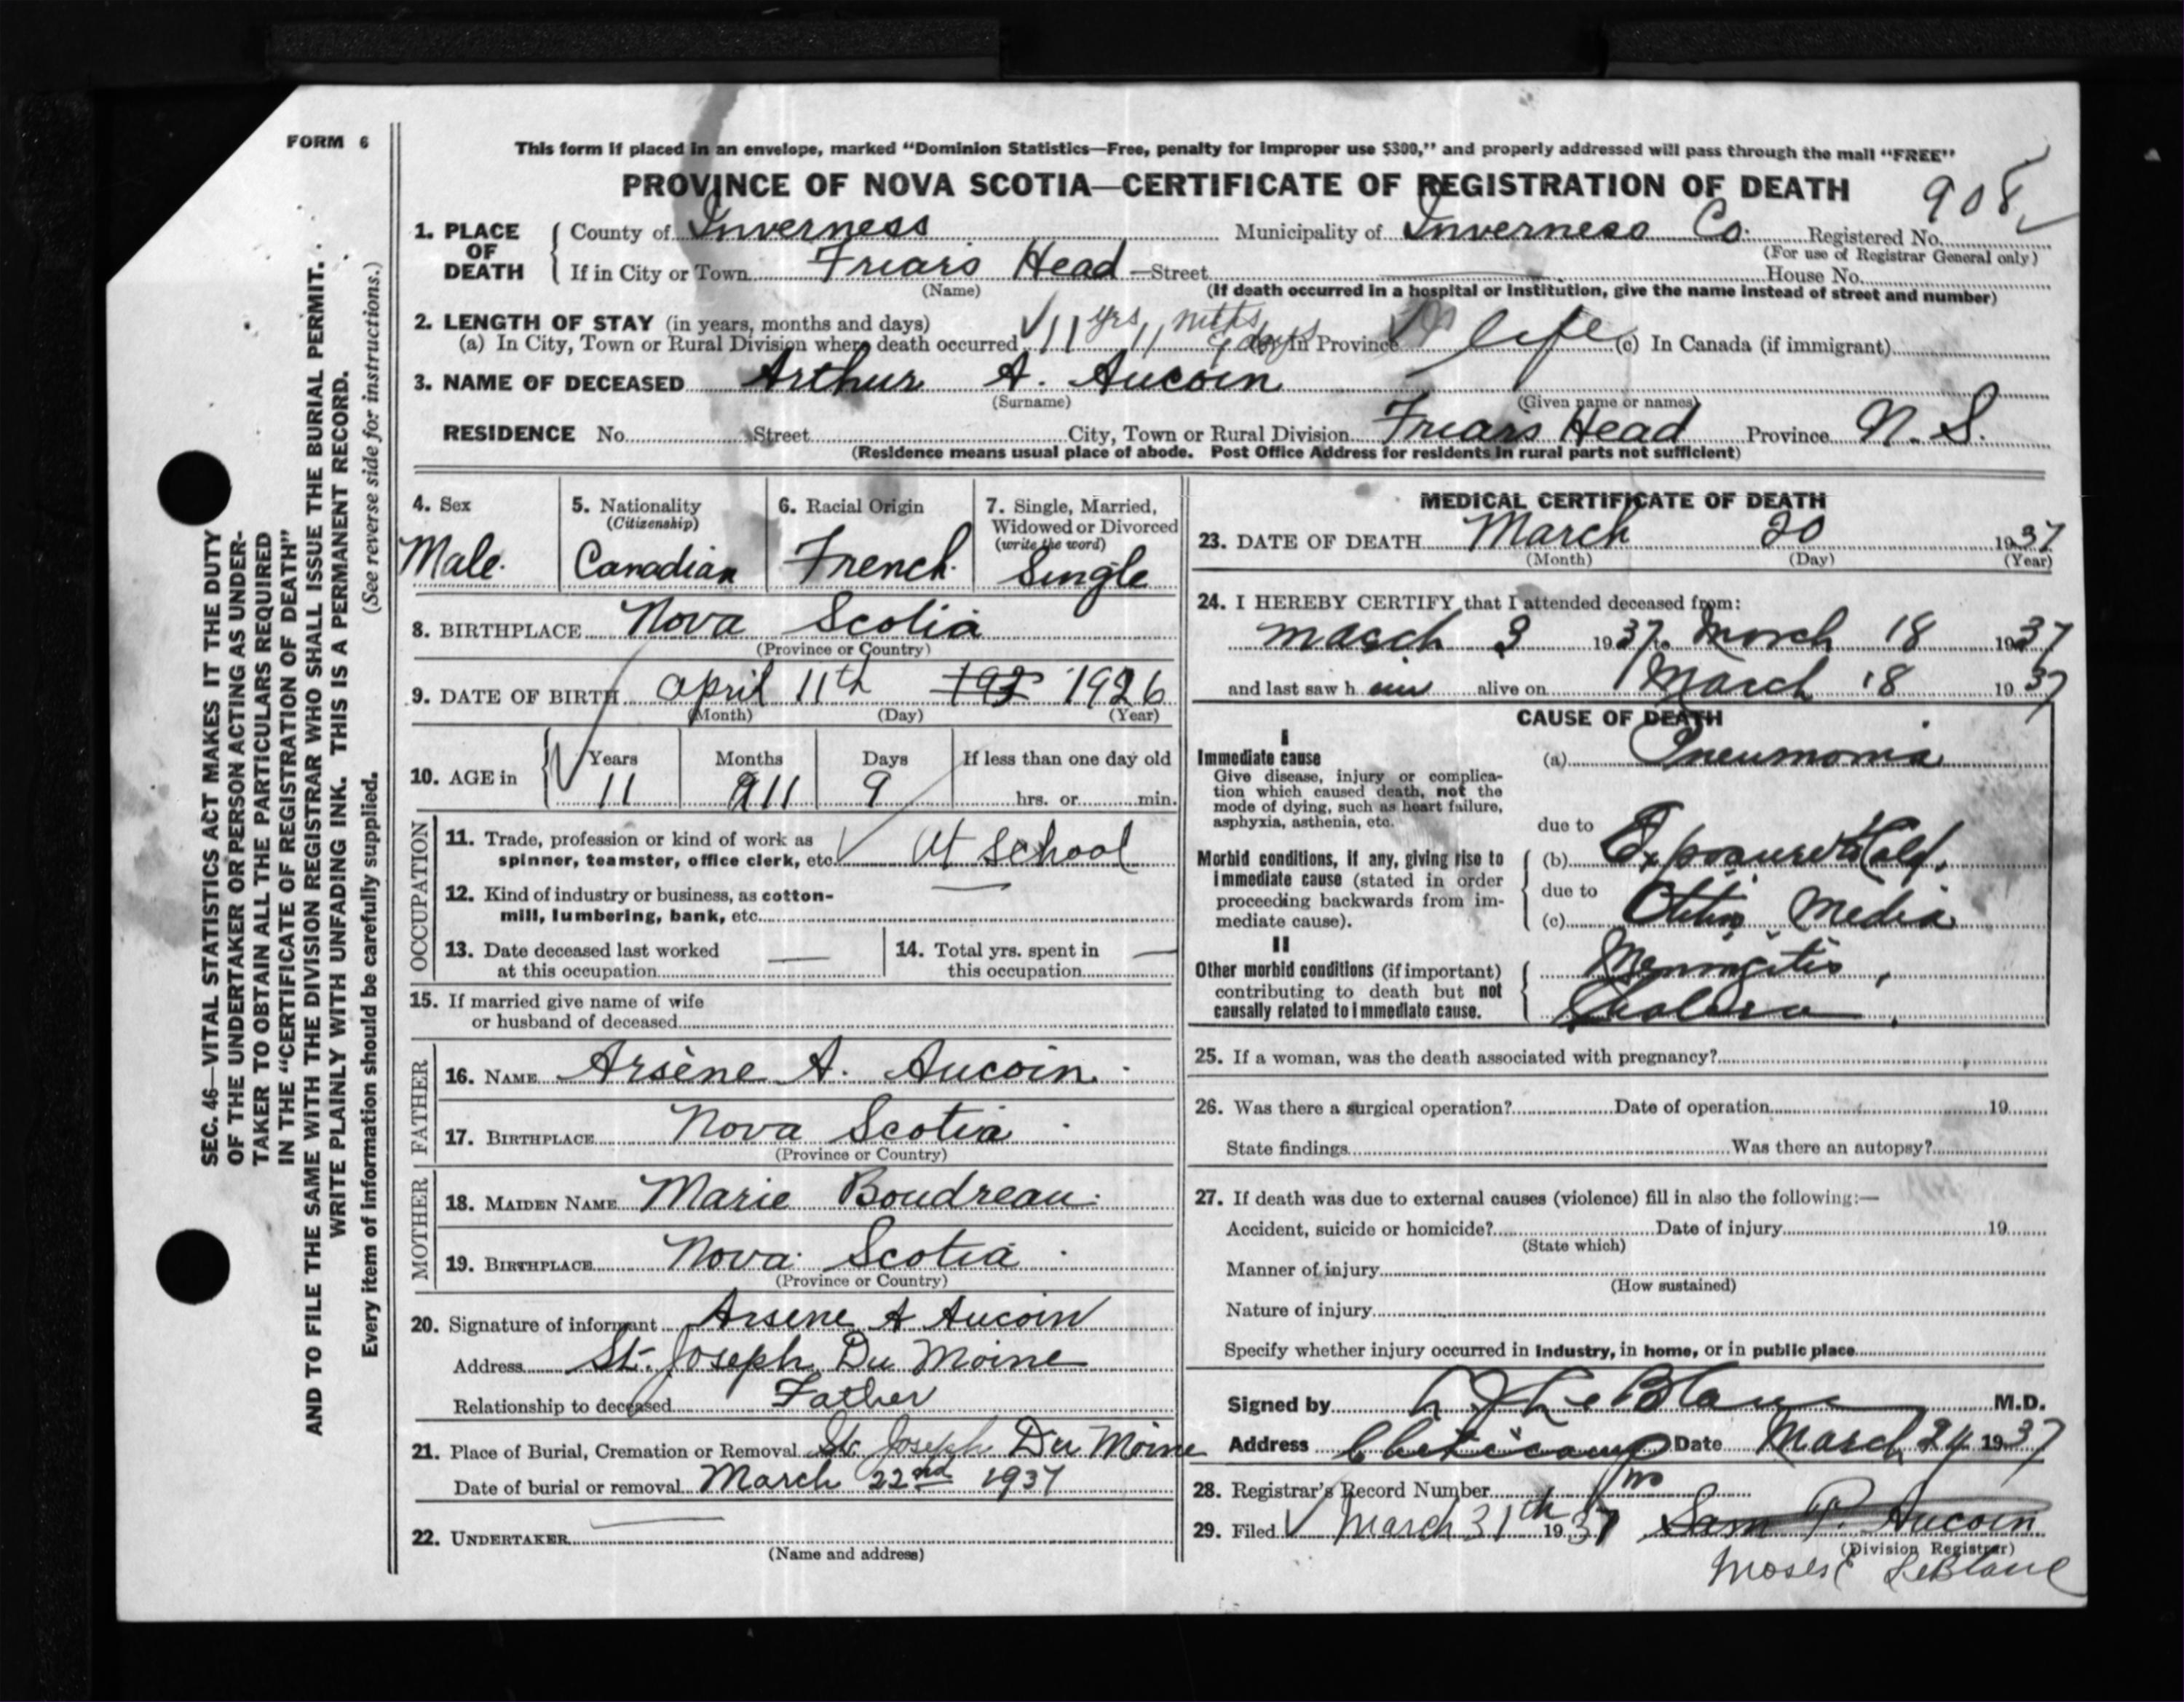 FORM 6
This form if placed in an envelope, marked "Dominion Statistics—Free, penalty for improper use $300," and properly addressed will pass through the mail "FREE"
PROVINCE OF NOVA SCOTIA—CERTIFICATE OF REGISTRATION OF DEATH
908
1. PLACE OF DEATH
County of Inverness Municipality of Inverness Co. Registered No.
(For use of Registrar General only)
If in City or Town Friars Head —Street House No.
(Name) (If death occurred in a hospital or institution, give the name instead of street and number)
2. LENGTH OF STAY (in years, months and days)
(a) In City, Town or Rural Division where death occurred 11 yrs 11 mths 9 days In Province life (c) In Canada (if immigrant)
3. NAME OF DECEASED Arthur A. Aucoin
(Surname) (Given name or names)
RESIDENCE No. Street City, Town or Rural Division Friars Head Province N. S.
(Residence means usual place of abode. Post Office Address for residents in rural parts not sufficient)
4. Sex
Male
5. Nationality
(Citizenship)
Canadian
6. Racial Origin
French
7. Single, Married,
Widowed or Divorced
(write the word)
Single
8. BIRTHPLACE Nova Scotia
(Province or Country)
9. DATE OF BIRTH April 11th 192 1926
(Month) (Day) (Year)
10. AGE in
Years Months Days If less than one day old
11 11 9 hrs. or min.
OCCUPATION
11. Trade, profession or kind of work as
spinner, teamster, office clerk, etc. At School
12. Kind of industry or business, as cotton-
mill, lumbering, bank, etc.
13. Date deceased last worked
at this occupation
14. Total yrs. spent in
this occupation
15. If married give name of wife
or husband of deceased
FATHER
16. NAME Arsène A. Aucoin
17. BIRTHPLACE Nova Scotia
(Province or Country)
MOTHER
18. MAIDEN NAME Marie Boudreau
19. BIRTHPLACE Nova Scotia
(Province or Country)
20. Signature of informant Arsene A Aucoin
Address St. Joseph Du Moine
Relationship to deceased Father
21. Place of Burial, Cremation or Removal St. Joseph Du Moine
Date of burial or removal March 22nd 1937
22. UNDERTAKER
(Name and address)
MEDICAL CERTIFICATE OF DEATH
23. DATE OF DEATH March 20 1937
(Month) (Day) (Year)
24. I HEREBY CERTIFY that I attended deceased from:
March 3 1937 to March 18 1937
and last saw h im alive on March 18 1937
CAUSE OF DEATH
I
Immediate cause (a) Pneumonia
Give disease, injury or complica-
tion which caused death, not the
mode of dying, such as heart failure,
asphyxia, asthenia, etc.
due to
Morbid conditions, if any, giving rise to (b) Exposure to Cold.
immediate cause (stated in order due to
proceeding backwards from im- (c) Otitis Media
mediate cause).
II
Other morbid conditions (if important) Meningitis,
contributing to death but not
causally related to immediate cause.
25. If a woman, was the death associated with pregnancy?
26. Was there a surgical operation? Date of operation 19
State findings Was there an autopsy?
27. If death was due to external causes (violence) fill in also the following:—
Accident, suicide or homicide? Date of injury 19
(State which)
Manner of injury
(How sustained)
Nature of injury
Specify whether injury occurred in industry, in home, or in public place
Signed by LeBlanc M.D.
Address Cheticamp Date March 24 1937
28. Registrar's Record Number
29. Filed March 31th 1937 Sam P. Aucoin
(Division Registrar)
Moses E LeBlanc
SEC. 46—VITAL STATISTICS ACT MAKES IT THE DUTY
OF THE UNDERTAKER OR PERSON ACTING AS UNDER-
TAKER TO OBTAIN ALL THE PARTICULARS REQUIRED
IN THE "CERTIFICATE OF REGISTRATION OF DEATH"
AND TO FILE THE SAME WITH THE DIVISION REGISTRAR WHO SHALL ISSUE THE BURIAL PERMIT.
WRITE PLAINLY WITH UNFADING INK. THIS IS A PERMANENT RECORD.
Every item of information should be carefully supplied. (See reverse side for instructions.)